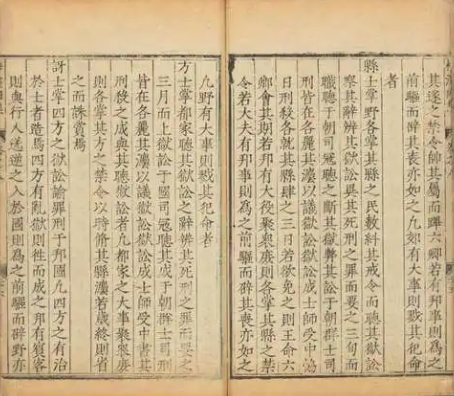 其遂之禁令帥其屬而蹕六卿若有邦事則為之
前驅而辟其喪亦如之凡郊有大事則戮其犯命
者
縣士掌野各掌其縣之民數糾其戒令而聽其獄訟
察其辭辨其獄訟異其死刑之罪而要之三旬而
職聽于朝司寇聽之斷其獄弊其訟于朝群士司
刑皆在各麗其灋以議獄訟獄訟成士師受中協
日刑殺各就其縣肆之三日若欲免之則王命六
鄉會其期若邦有大役聚衆庶則各掌其縣之禁
令若大夫有邦事則為之前驅而辟其喪亦如之
凡野有大事則戮其犯命者
方士掌都家聽其獄訟之辭辨其死刑之罪而要之
三月而上獄訟于國司寇聽其成于朝群士司刑
皆在各麗其灋以議獄訟獄訟成士師受中書其
刑殺之成與其聽獄訟者凡都家之大事聚衆庶
則各掌其方之禁令以時脩其縣灋若歲終則省
之而誅賞焉
訝士掌四方之獄訟諭罪刑于邦國凡四方之有治
於士者造焉四方有亂獄則往而成之邦有賓客
則與行人送逆之入於國則為之前驅而辟野亦